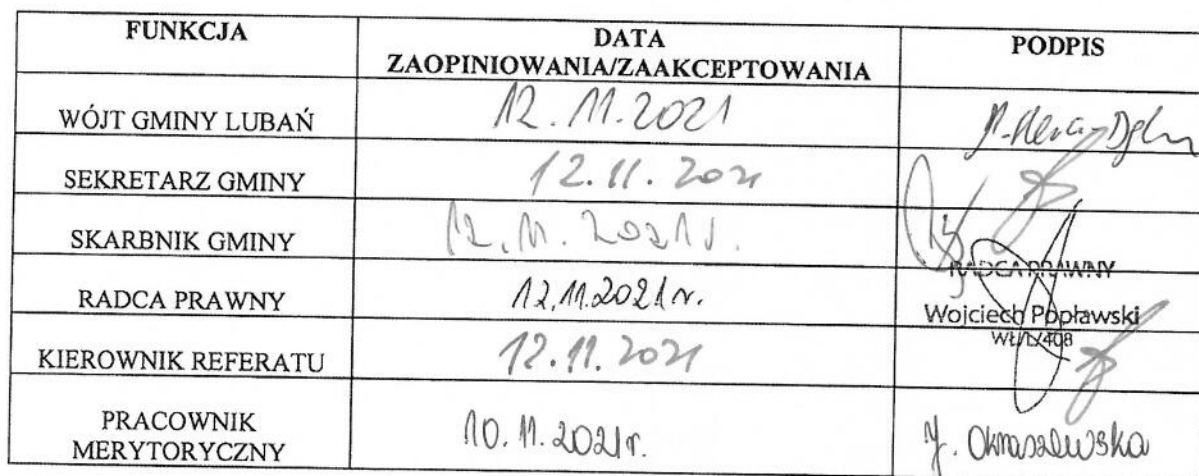 FUNKCJA
DATA
ZAOPINIOWANIA/ZAAKCEPTOWANIA
PODPIS
WÓJT GMINY LUBAŃ
12.11.2021
SEKRETARZ GMINY
12.11.2021
SKARBNIK GMINY
12.11.2021r.
RADCA PRAWNY
12.11.2021r.
RADCA PRAWNY
Wojciech Popławski
WŁ/L/408
KIEROWNIK REFERATU
12.11.2021
PRACOWNIK
MERYTORYCZNY
10.11.2021r.